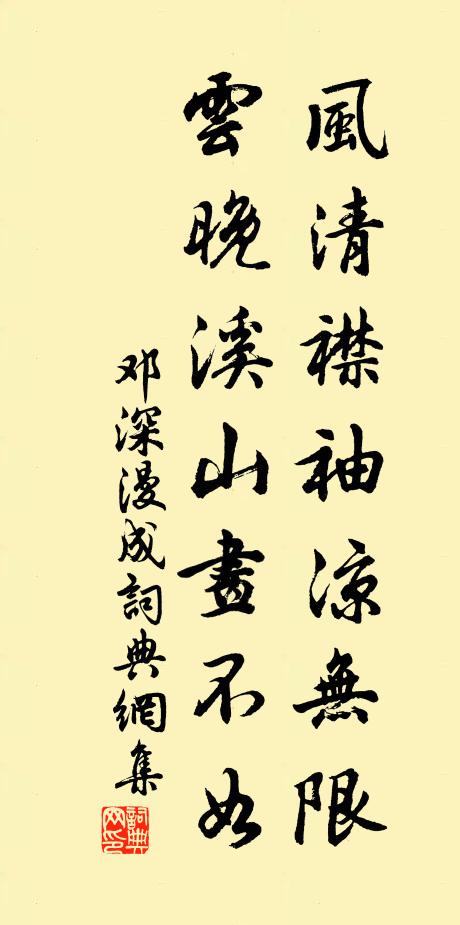 風清襟袖凉無限
雲晚溪山畫不如
邓深漫成詞典網集
詞典網印